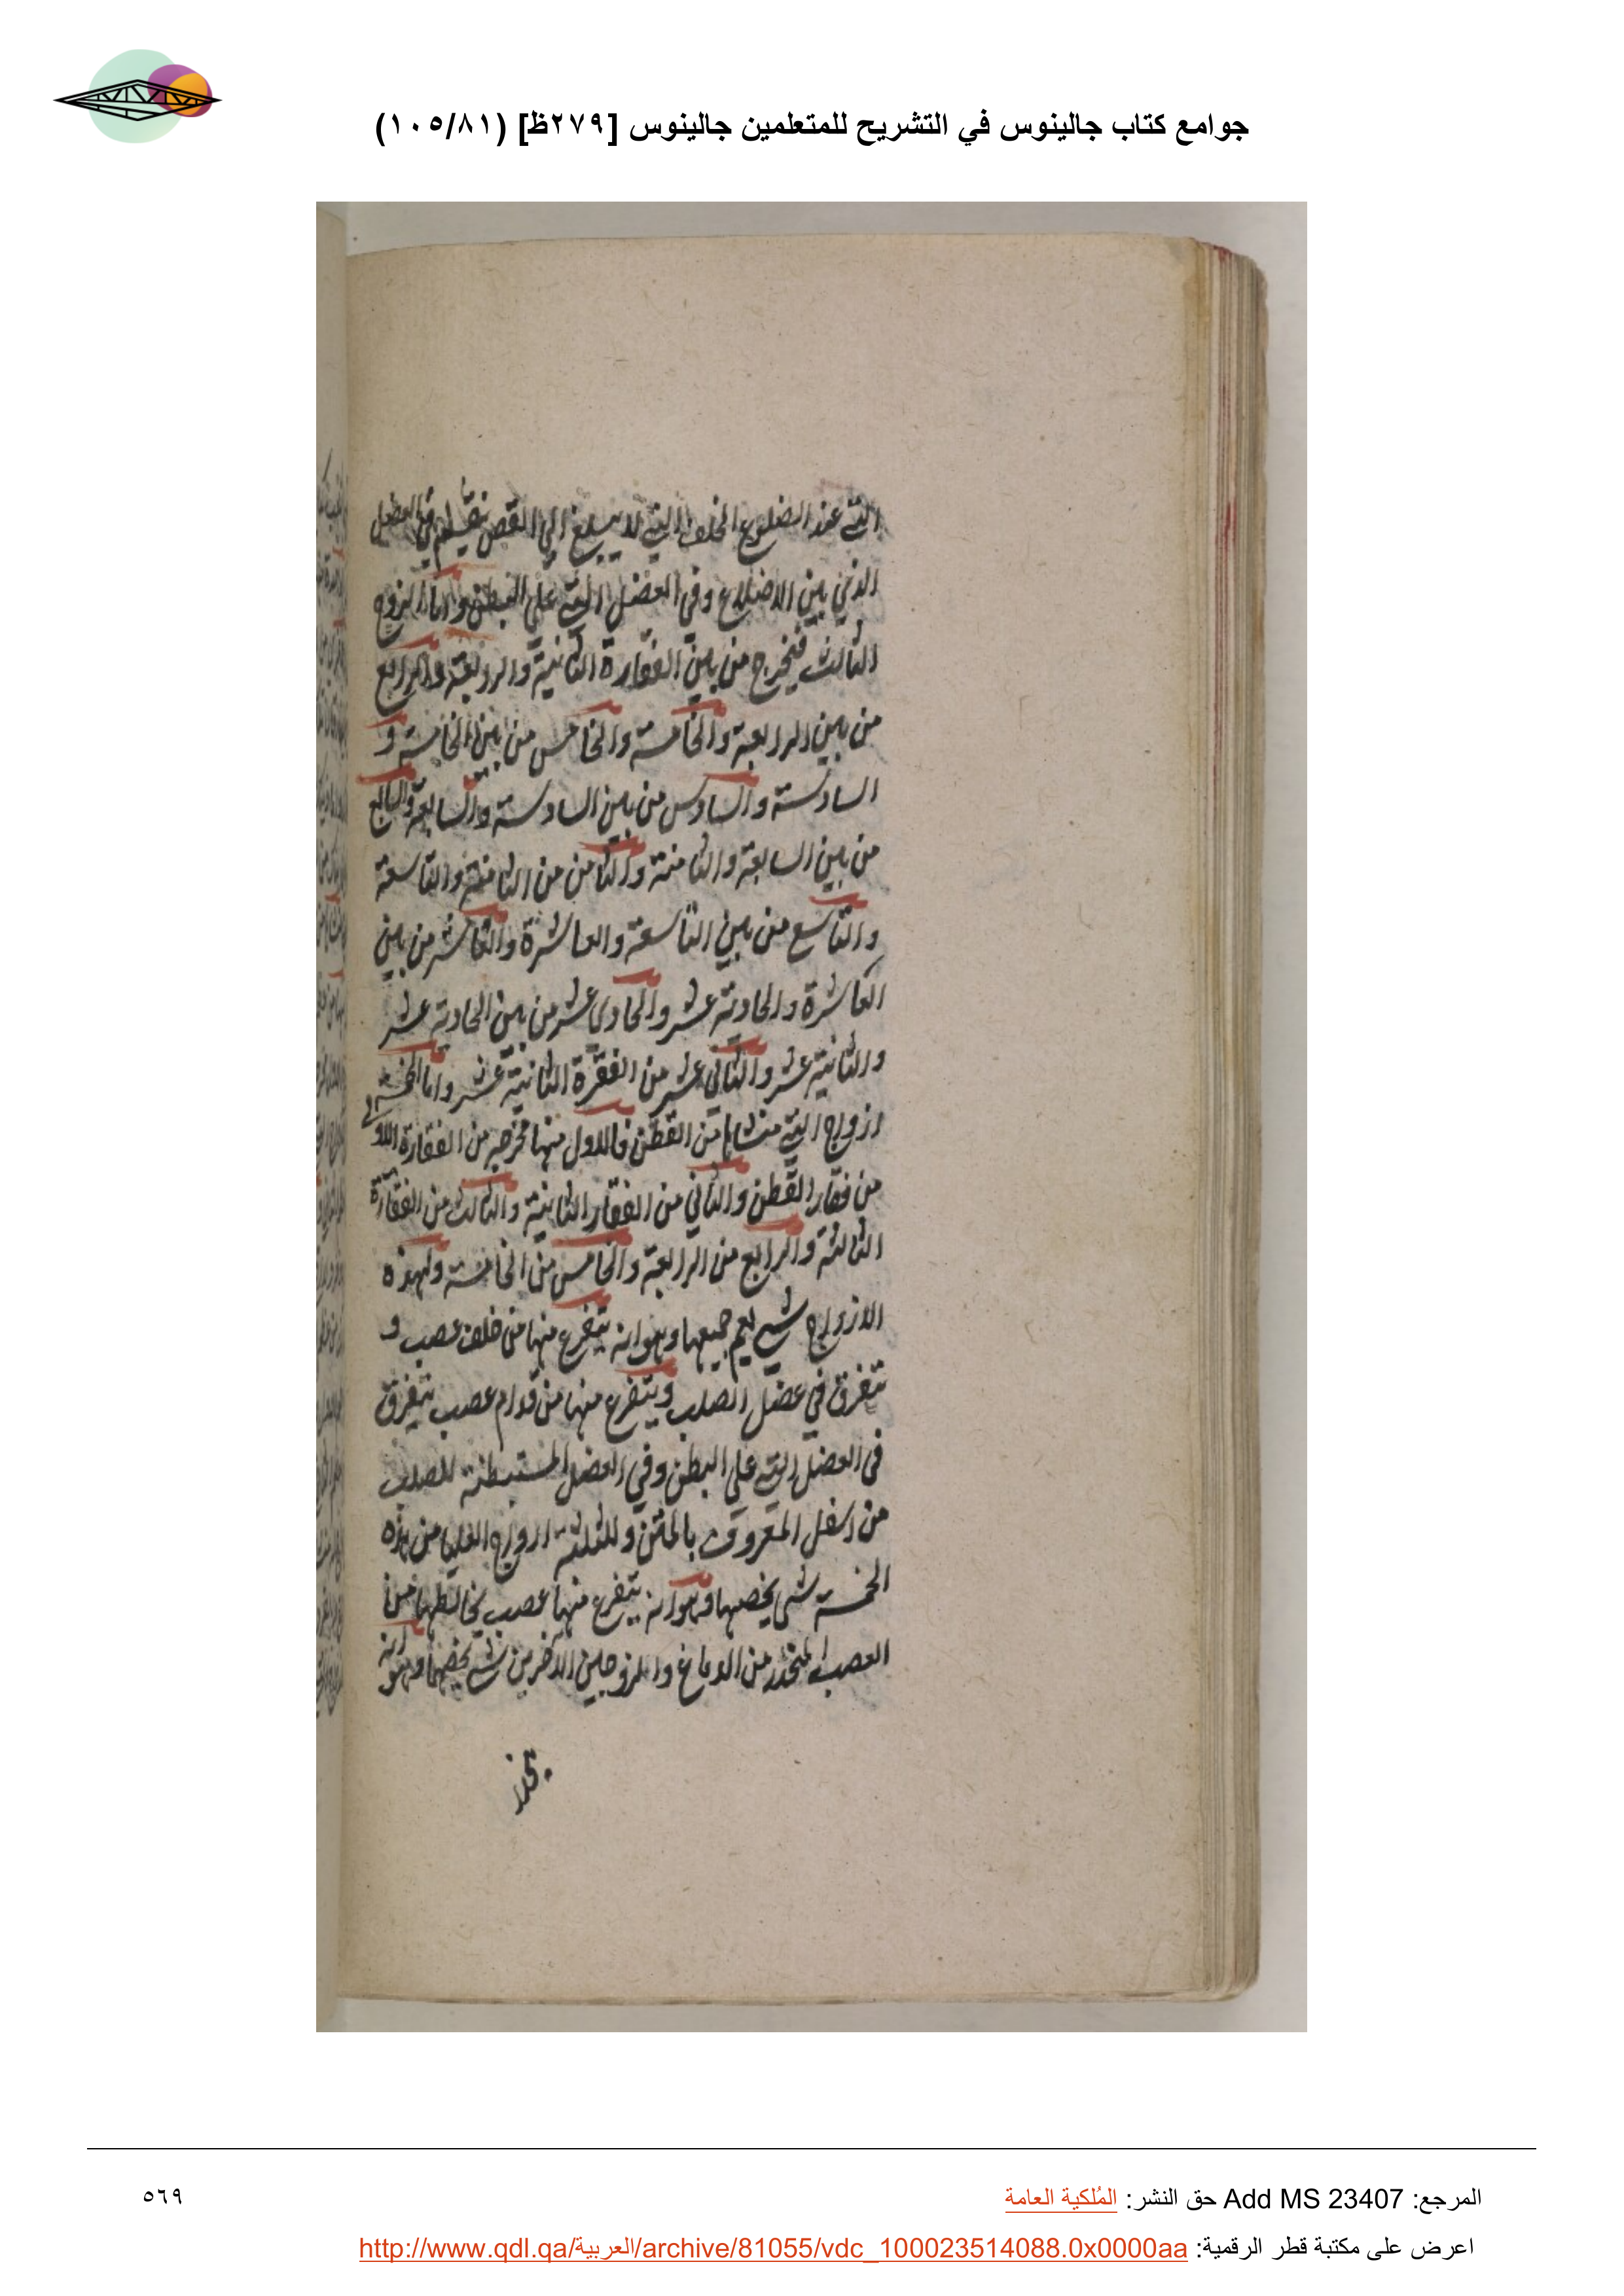 جوامع كتاب جالينوس في التشريح للمتعلمين جالينوس [٢٧٩ظ] (١٠٥/٨١)
التي عند الضلوع الخلف التي لا يبلغ الي القص ينقسم في العضل
الذي بين الاضلاع وفي العضل التي علي البطن واما الزوج
الثالث فيخرج من بين الفقارة الثانية والرابعة والرابع
من بين الرابعة والخامسة والخامس من بين الخامسة و
السادسة والسادس من بين السادسة والسابعة والسابع
من بين السابعة والثامنة والثامن من الثامنة والتاسعة
والتاسع من بين التاسعة والعاشرة والعاشر من بين
العاشرة والحادية عشر والحادي عشر من بين الحادية عشر
والثانية عشر والثاني عشر من الفقرة الثانية عشر واما الخمسة
ازواج التي منشاها من القطن فالاول منها مخرجه من الفقارة الاولي
من فقار القطن والثاني من الفقار الثانية والثالث من الفقارة
الثالثة والرابع من الرابعة والخامس من الخامسة ولهذه
الازواج شي يعم جميعها وهو انه يتفرع منها من خلف عصب و
تتفرق في عضل الصلب ويتفرع منها من قدام عصب يتفرق
في العضل التي علي البطن وفي العضل المستبطنة للصلب
من اسفل المعروف بالمتن وللثلثة ازواج العليا من هذه
الخمسة شي يخصها وهو انه يتفرع منها عصب يخالطها من
العصب المنحدر من الدماغ وللزوجين الاخرين شي يخصهما وهو انه
ينحدر
المرجع: Add MS 23407 حق النشر: المُلكية العامة
٥٦٩
اعرض على مكتبة قطر الرقمية: http://www.qdl.qa/العربية/archive/81055/vdc_100023514088.0x0000aa